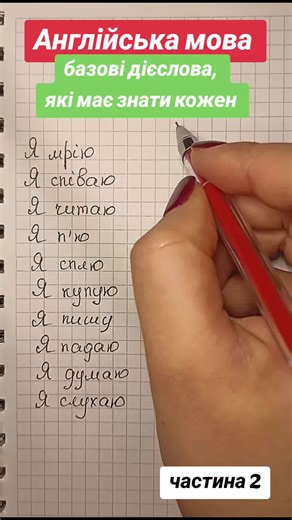 Англійська мова
базові дієслова,
які має знати кожен
Я мрію
Я співаю
Я читаю
Я п'ю
Я сплю
Я купую
Я пишу
Я падаю
Я думаю
Я слухаю
частина 2